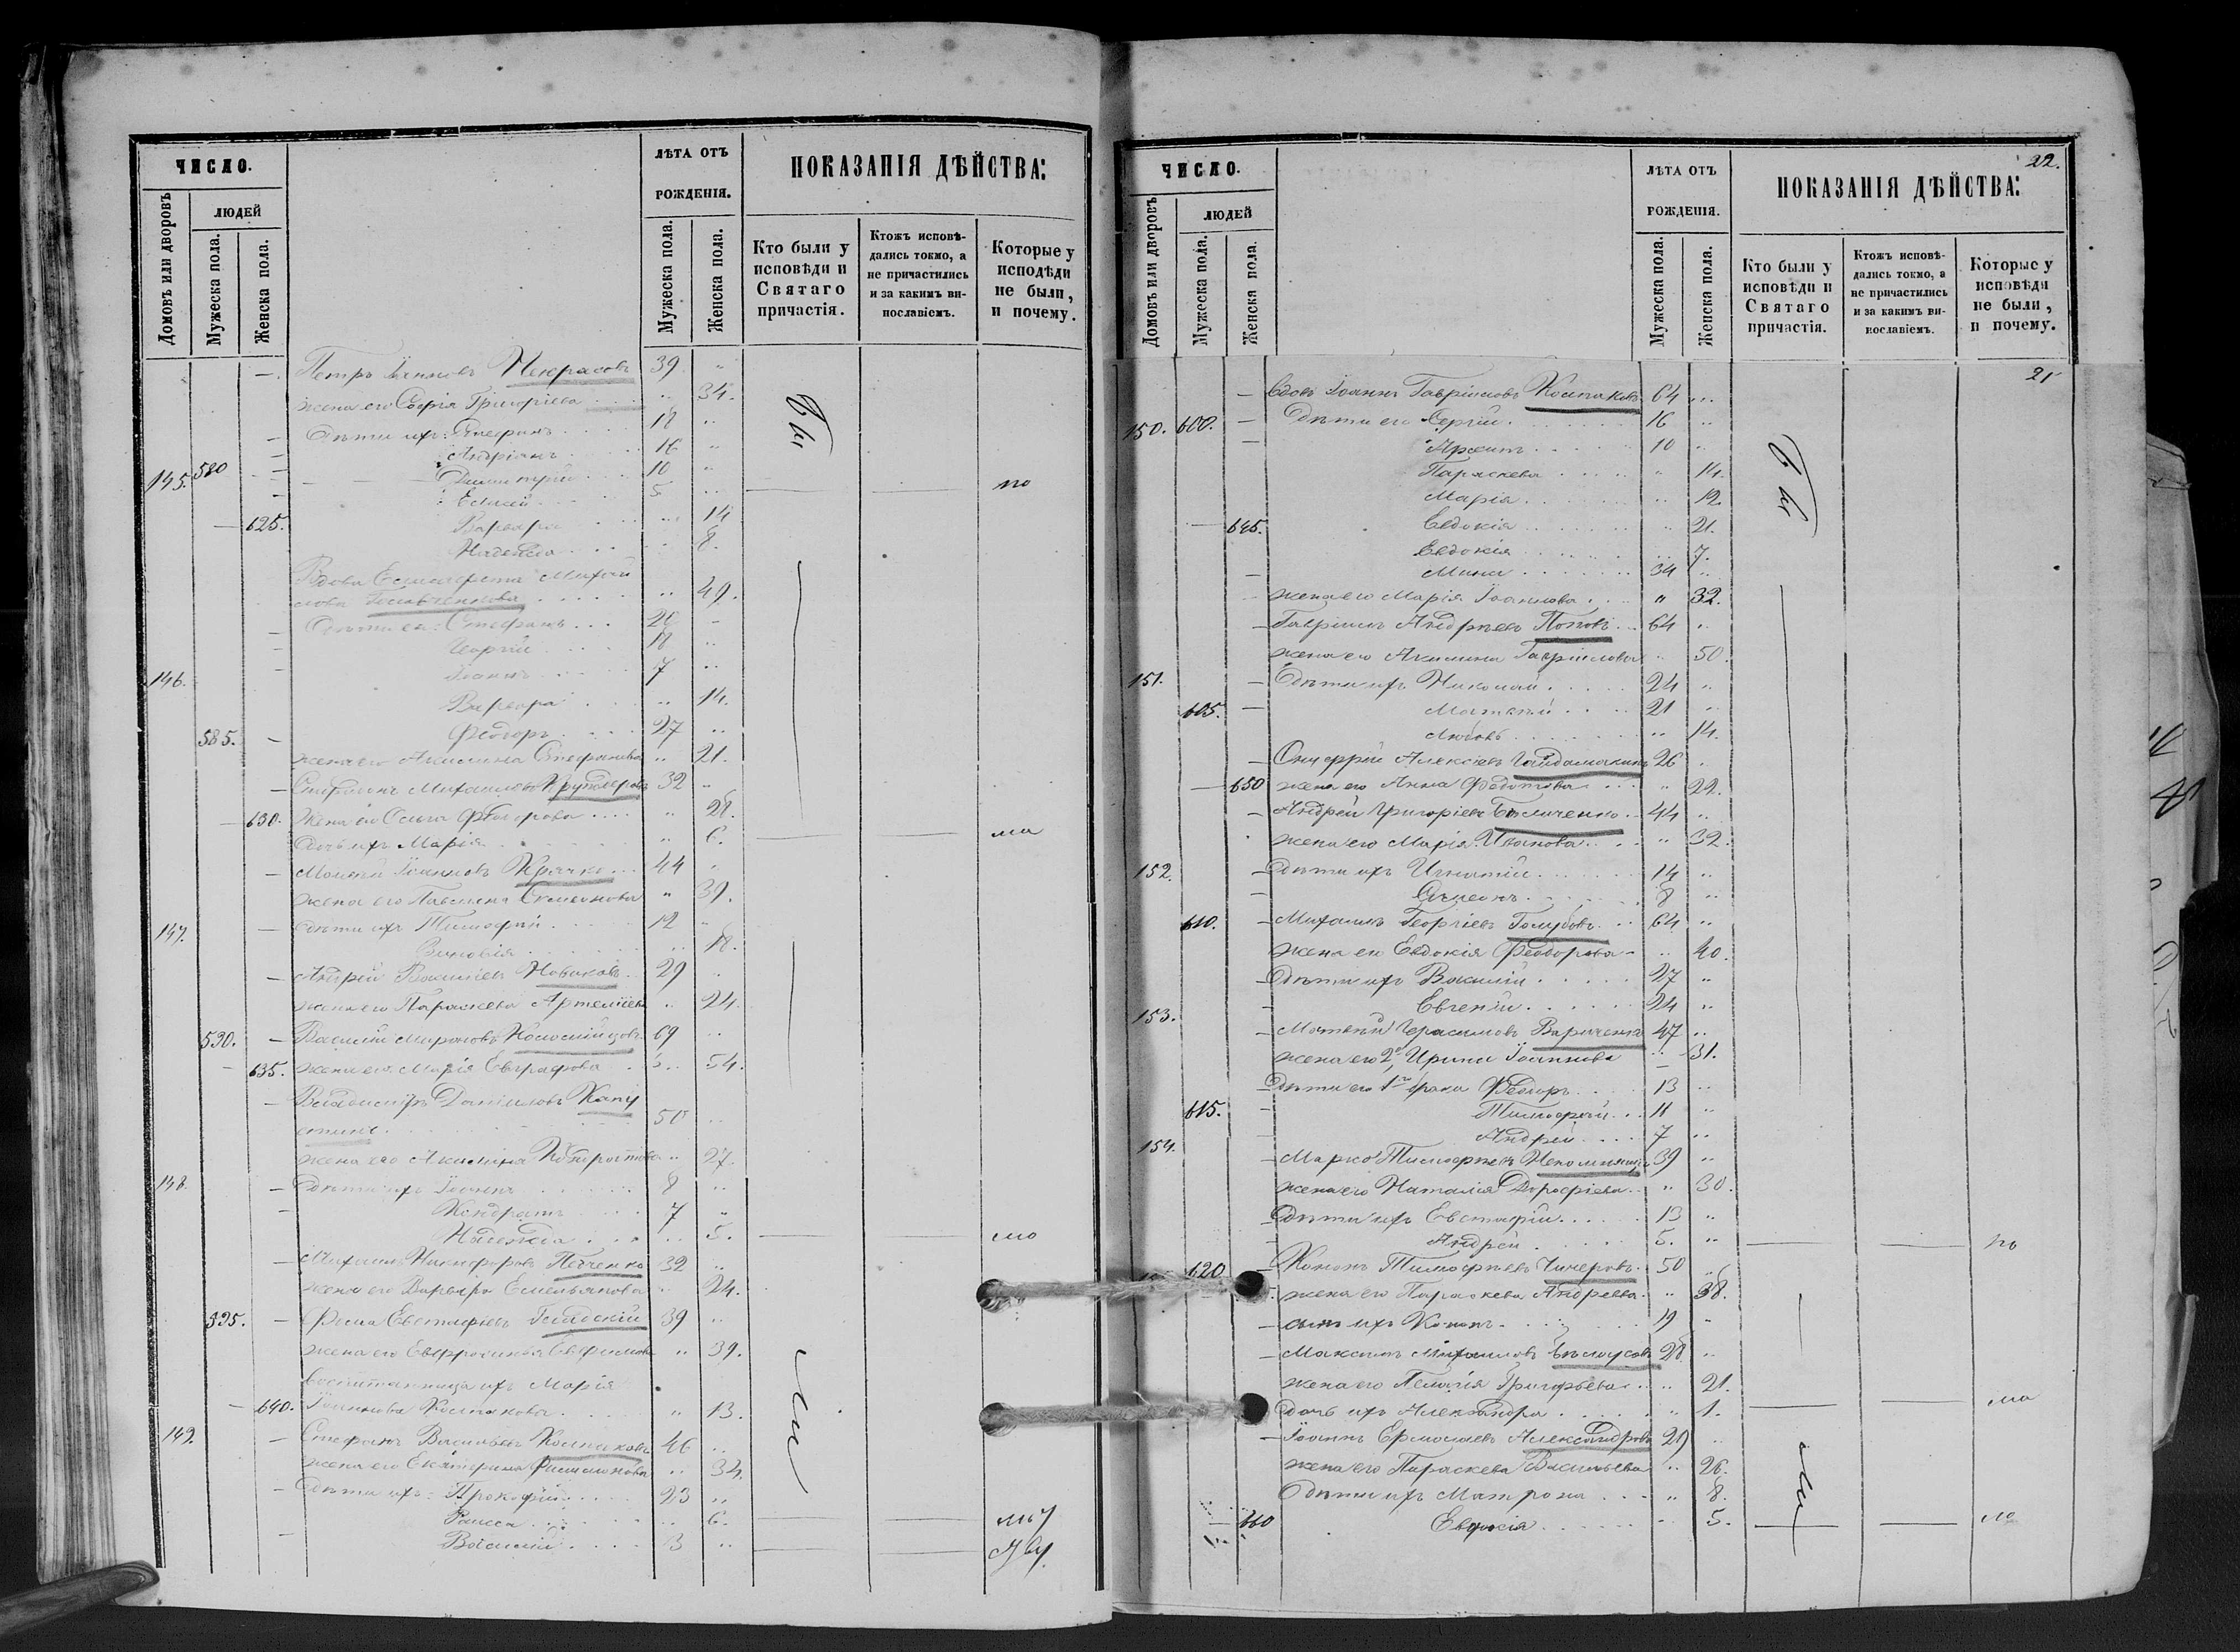 ЧИСЛО.
Домовъ или дворовъ
ЛЮДЕЙ
Мужеска пола.
Женска пола.
ЛѢТА ОТЪ
РОЖДЕНІЯ.
Мужеска пола.
Женска пола.
ПОКАЗАНІЯ ДѢЙСТВА:
Кто были у
исповѣди и
Святаго
причастія.
Ктожъ исповѣ-
дались токмо, а
не причастились
и за какимъ ви-
нословіемъ.
Которые у
исповѣди
не были,
и почему.
Петръ Іоанновъ Некрасовъ 39 "
жена его Софія Григоріева " 34.
Дѣти ихъ: Стефанъ 18 "
Андріанъ 16 "
145. 580 Димитрій 10 "
5 "
625. Варвара " 14
Надежда " 8.
Вдова Елисавета Михаи
лова " 49.
Дѣти ея: Стефанъ 20
Георгій 18 "
146. Іоаннъ 7 "
Варвара " 14.
585. Ѳеодоръ 27 "
жена его Акилина Стефанова " 21.
Михаиловъ 32 "
630. Жена его Ольга " 28.
Дочь ихъ Марія " 6.
Іоанновъ Крячко 44
жена его Симеонова " 39.
147. Дѣти ихъ Тимофей 12
" 18.
Андрей Василіевъ Новиковъ 29
жена его Параскева " 24.
590. Василій Мироновъ 69
635. жена его Марія Евграфова " 54.
Владиміръ Даніиловъ Капу
стинъ 50 "
жена его Акилина " 27.
148. Дѣти ихъ Іоаннъ 8 "
Кондратъ 7 "
Надежда " 5.
Михаилъ Никифоровъ 32 "
жена его Варвара Емельянова 24.
595. Фома Евстафіевъ Гладскій 39 "
жена его Евфросинія " 39.
воспитанница ихъ Марія
640. Іоаннова Колпакова " 13.
149. Стефанъ Васильевъ Колпаковъ 46 "
жена его Екатерина " 34.
Дѣти ихъ: Прокофій 23 "
Раиса " 6.
Василій 3 "
ЧИСЛО.
Домовъ или дворовъ
ЛЮДЕЙ
Мужеска пола.
Женска пола.
ЛѢТА ОТЪ
РОЖДЕНІЯ.
Мужеска пола.
Женска пола.
ПОКАЗАНІЯ ДѢЙСТВА:
22.
Кто были у
исповѣди и
Святаго
причастія.
Ктожъ исповѣ-
дались токмо, а
не причастились
и за какимъ ви-
нословіемъ.
Которые у
исповѣди
не были,
и почему.
21
Вдовъ Іоаннъ Гавріиловъ Колпаковъ 64
150. 600. Дѣти его Сергій 16 "
10 "
Параскева " 14.
Марія " 12
645. Евдокія " 21.
Евдокія " 7.
Мина 34 "
жена его Марія Іоаннова " 32.
Гавріилъ Андреевъ Поповъ 64 "
жена его Акилина Гавріилова " 50.
151. Дѣти ихъ Николай 24 "
605. Матвей 21 "
Любовь " 14.
Онуфрій Алексіевъ Гайдамакинъ 26
650 жена его Анна Федотова " 22.
Андрей Григоріевъ Бѣличенко 44 "
жена его Марія Иванова " 32.
152. Дѣти ихъ Игнатій 14 "
Симеонъ 8 "
610. Михаилъ Георгіевъ Голубовъ 64 "
жена его Евдокія Ѳеодорова " 40.
Дѣти ихъ Василій 27 "
Евгеній 24 "
153. Матвей Герасимовъ 47 "
жена его 2я Ирина Іоаннова " 31.
Дѣти его 1го брака Ѳеодоръ 13 "
615. Тимофей 11 "
Андрей 7 "
154. Марко Тимофеевъ 39 "
жена его Наталія Дорофіева " 30.
Дѣти ихъ Евстафій 13 "
Андрей 5. "
620 Кононъ Тимофеевъ 50
жена его Параскева Андреева " 38.
сынъ ихъ Кононъ 19
Максимъ Михаиловъ Бѣлоусовъ 28 "
жена его Пелагія Григорьева " 21.
дочь ихъ Александра " 1.
Іоаннъ Ермолаевъ Александровъ 29 "
жена его Параскева Васильева " 26.
Дѣти ихъ Матрона " 8.
660 5.